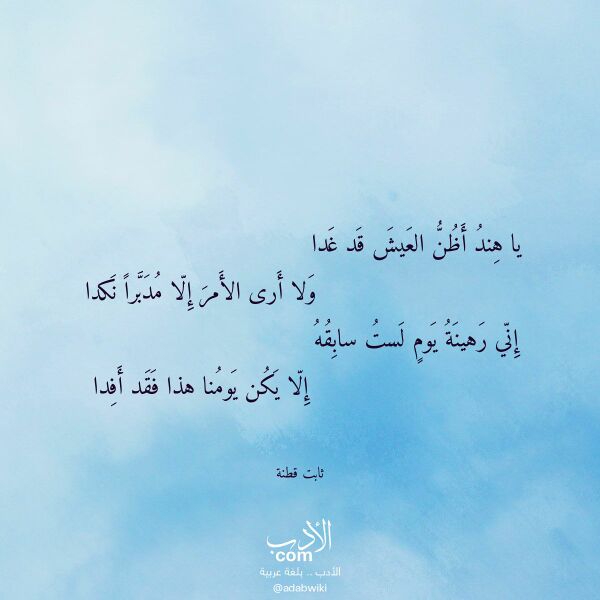 يا هِندُ أَظُنُّ العَيشَ قَد غَدا
وَلا أَرى الأَمرَ إِلّا مُدَبَّراً نَكدا
إِنّي رَهينَةُ يَومٍ لَستُ سابِقُهُ
إِلّا يَكُن يَومُنا هذا فَقَد أَفِدا
ثابت قطنة
الأدب
com
الأدب .. بلغة عربية
@adabwiki